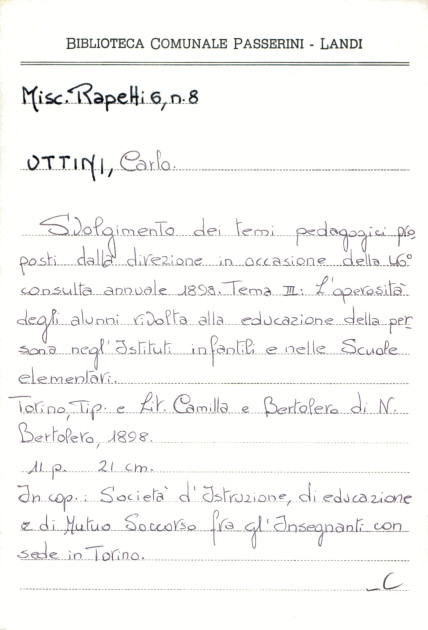 BIBLIOTECA COMUNALE PASSERINI - LANDI
Misc. Rapetti 6, n. 8
OTTINI, Carlo.
Svolgimento dei temi pedagogici pro
posti dalla direzione in occasione della 46°
consulta annuale 1898. Tema III: L'operosità
degli alunni rivolta alla educazione della per
sona negl'Istituti infantili e nelle Scuole
elementari.
Torino, Tip. e Lit. Camilla e Bertolero di N.
Bertolero, 1898.
11 p. 21 cm.
In cop.: Società d'Istruzione, di educazione
e di Mutuo Soccorso fra gl'Insegnanti con
sede in Torino.
_C